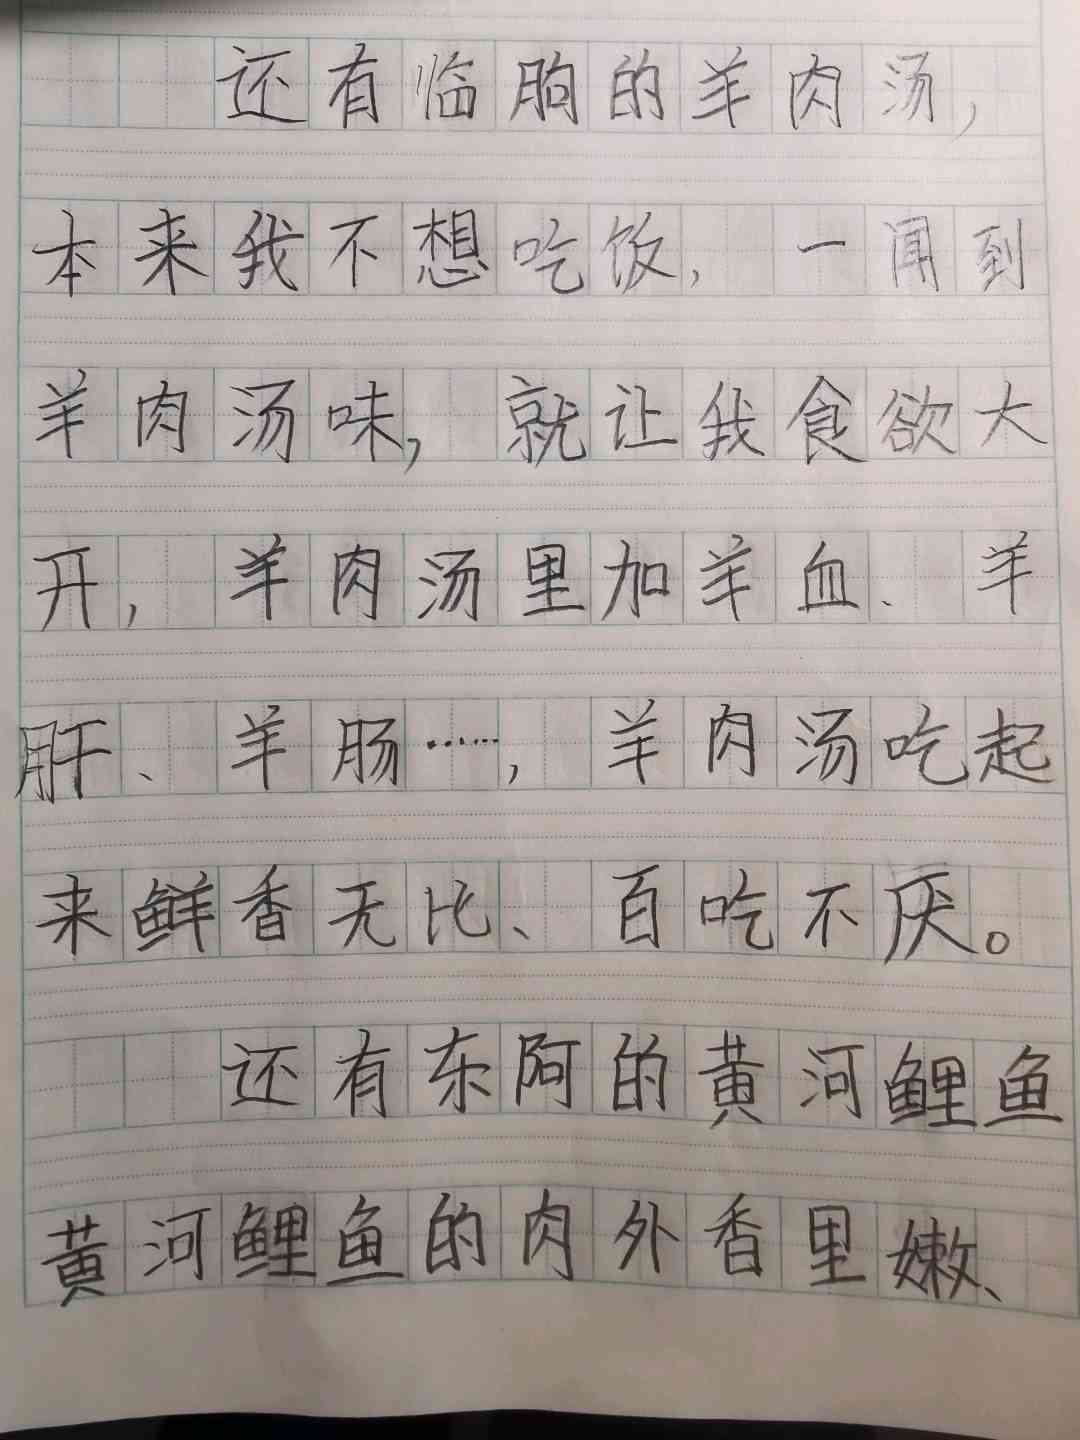 还有临朐的羊肉汤，
本来我不想吃饭，一闻到
羊肉汤味，就让我食欲大
开，羊肉汤里加羊血、羊
肝、羊肠……，羊肉汤吃起
来鲜香无比、百吃不厌。
还有东阿的黄河鲤鱼
黄河鲤鱼的肉外香里嫩、